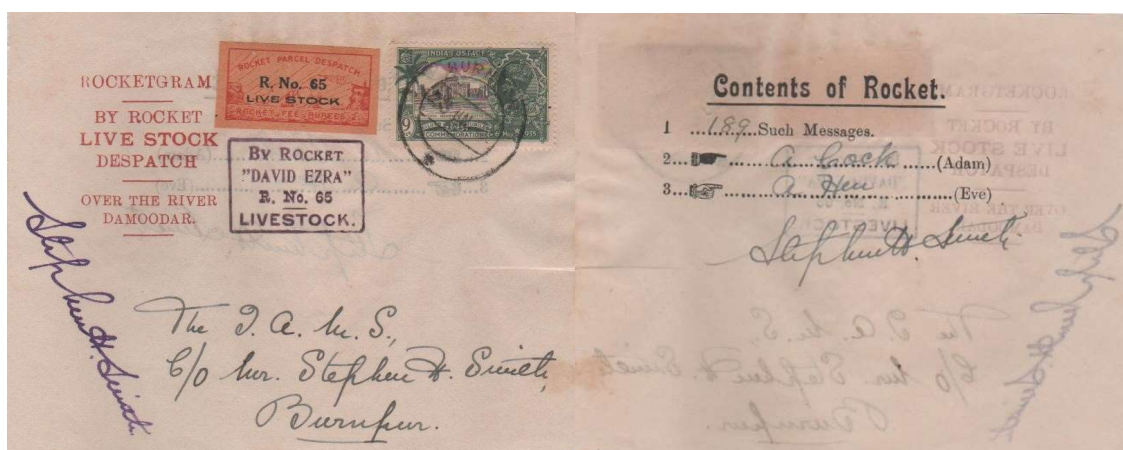 ROCKETGRAM
BY ROCKET
LIVE STOCK
DESPATCH
OVER THE RIVER
DAMOODAR.
ROCKET PARCEL DESPATCH
R. No. 65
LIVE STOCK
ROCKET FEE RUPEES
INDIA POSTAGE
BY ROCKET
"DAVID EZRA"
R. No. 65
LIVESTOCK.
Stephen H. Smith
The I. A. M. S,
C/o Mr. Stephen H. Smith,
Burnpur.
Contents of Rocket.
1 ...189...Such Messages.
2... a Cock ...(Adam)
3... a Hen ...(Eve)
Stephen H. Smith